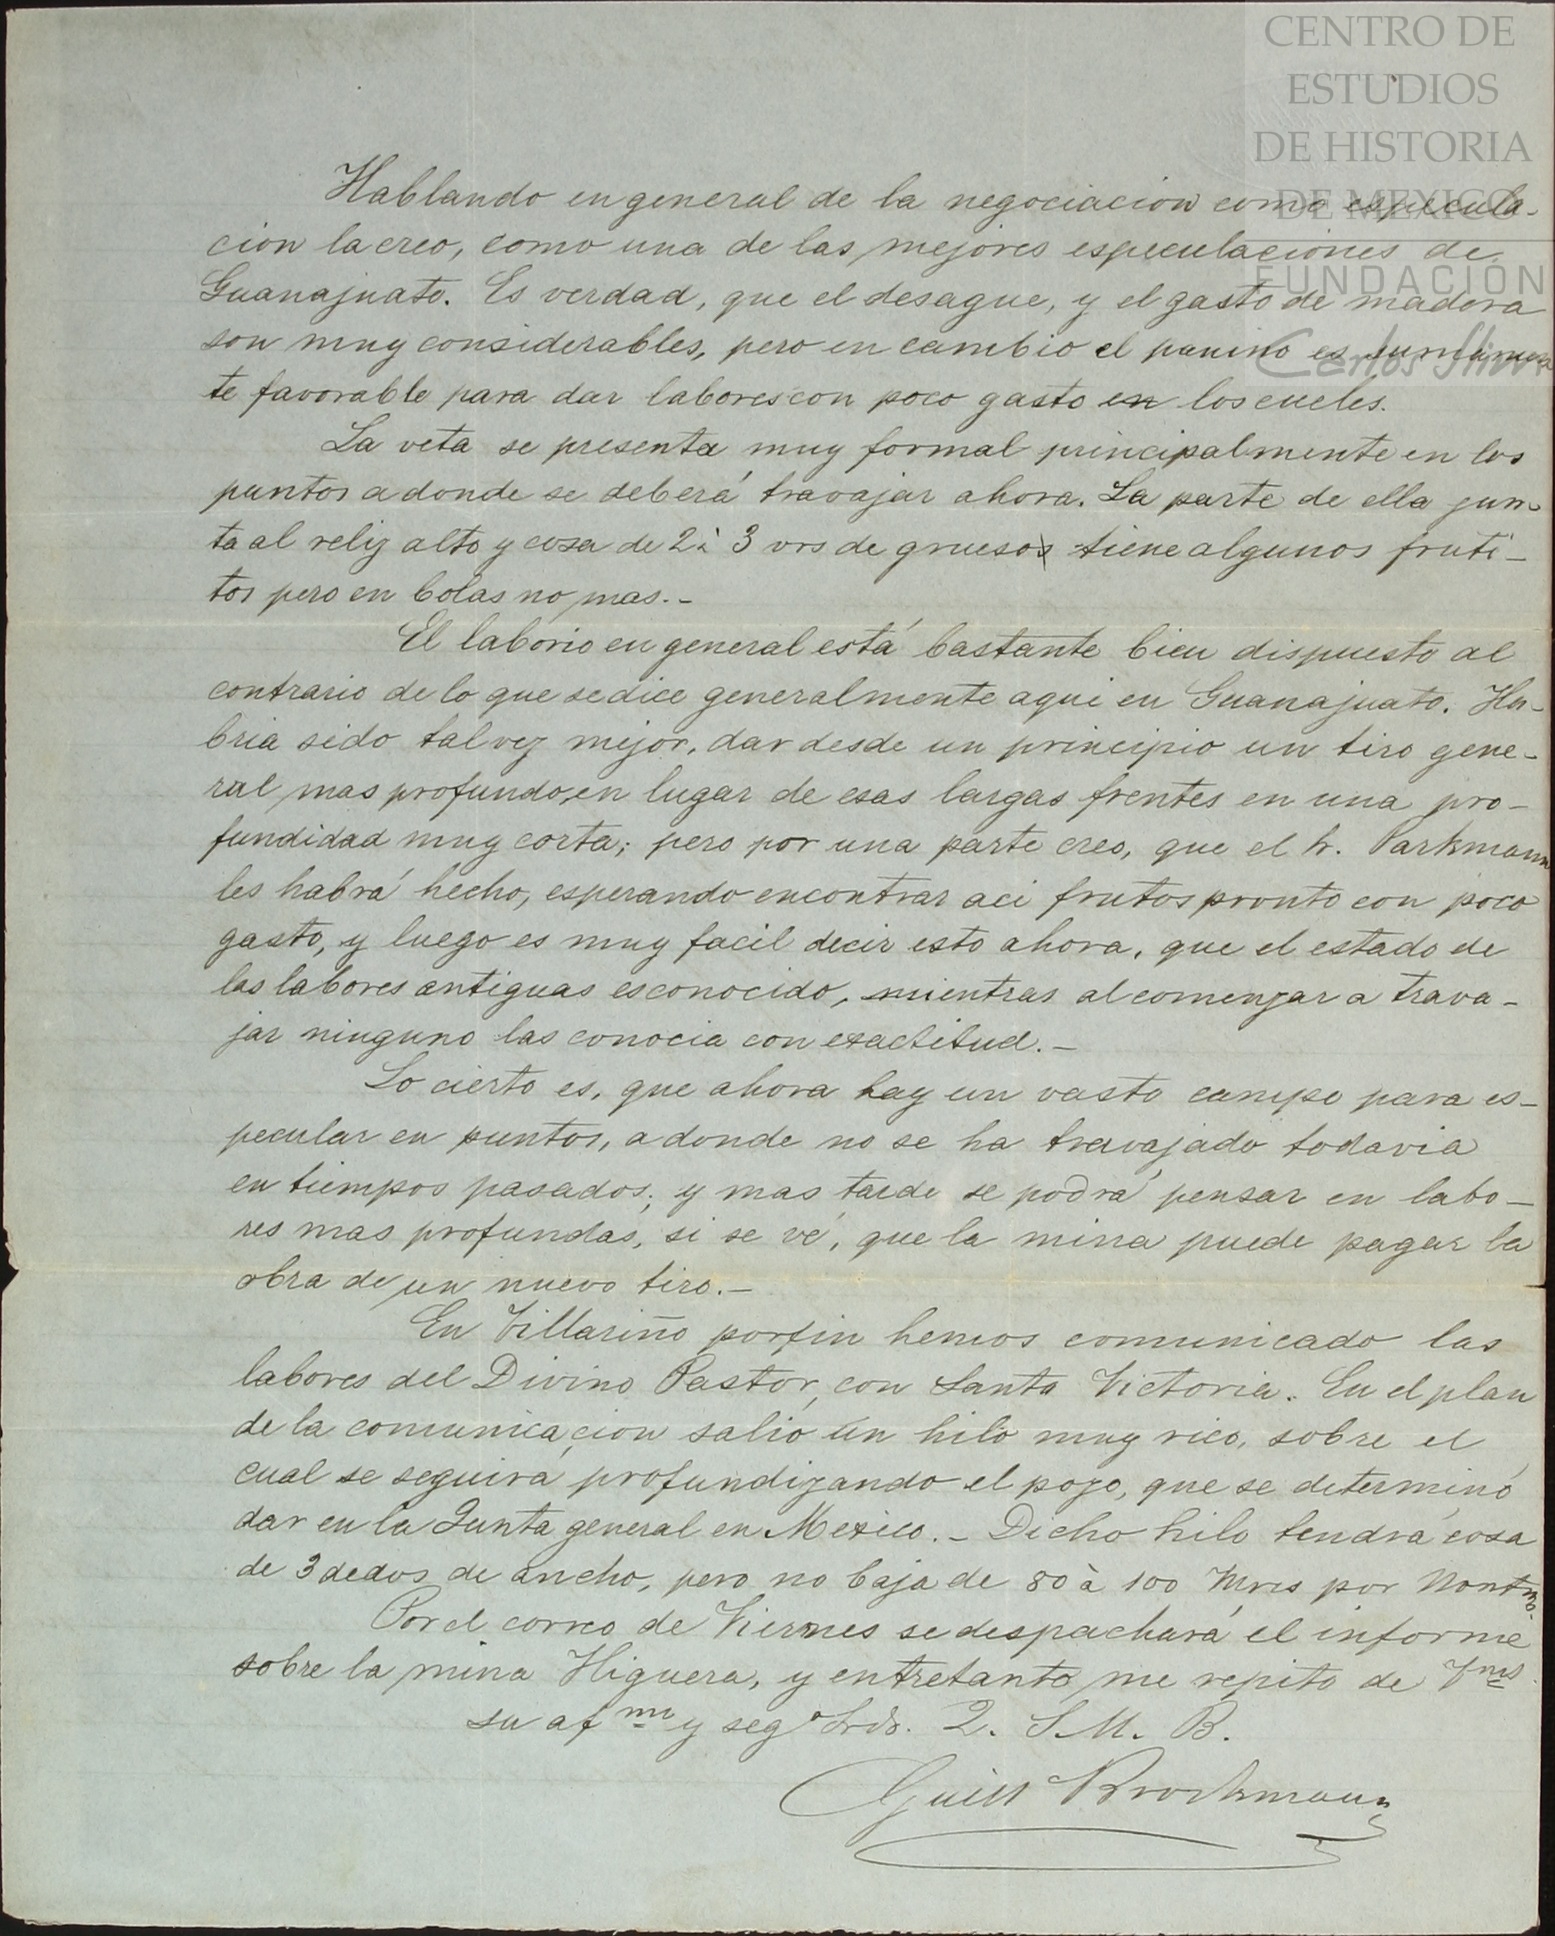 CENTRO DE
ESTUDIOS
DE HISTORIA
DE MEXICO
FUNDACIÓN
Carlos Slim
Hablando en general de la negociacion como especula-
cion la creo, como una de las mejores especulaciones de
Guanajuato. Es verdad, que el desague, y el gasto de madera
son muy considerables, pero en cambio el panino es sumamen
te favorable para dar labores con poco gasto en los cueles.
La veta se presenta muy formal principalmente en los
puntos a donde se deberá travajar ahora. La parte de ella jun-
ta al reliz alto y cosa de 2 à 3 vrs de grueso tiene algunos fruti-
tos pero en bolas no mas.-
El laborio en general está bastante bien dispuesto al
contrario de lo que se dice generalmente aqui en Guanajuato. Ha-
bria sido tal vez mejor, dar desde un principio un tiro gene-
ral mas profundo, en lugar de esas largas frentes en una pro-
fundidad muy corta; pero por una parte creo, que el Sr. Parkmann
les habrá hecho, esperando encontrar aci frutos pronto con poco
gasto, y luego es muy facil decir esto ahora, que el estado de
las labores antiguas es conocido, mientras al comenzar a trava-
jar ninguno las conocia con exactitud.-
Lo cierto es, que ahora hay un vasto campo para es-
pecular en puntos, a donde no se ha travajado todavia
en tiempos pasados; y mas tarde se podrá pensar en labo-
res mas profundas, si se vé, que la mina puede pagar la
obra de un nuevo tiro.-
En Villariño por fin hemos comunicado las
labores del Divino Pastor con Santa Victoria. En el plan
de la comunicacion salio un hilo muy rico, sobre el
cual se seguirá profundizando el pozo, que se determinó
dar en la Junta general en Mexico.- Dicho hilo tendrá cosa
de 3 dedos de ancho, pero no baja de 80 à 100 Mrcs por Montn.
Por el correo de Viernes se despachará el informe
sobre la mina Higuera, y entretanto me repito de Vmes
su afmo y sego Srdr. Q. S. M. B.
Guill Brockmann